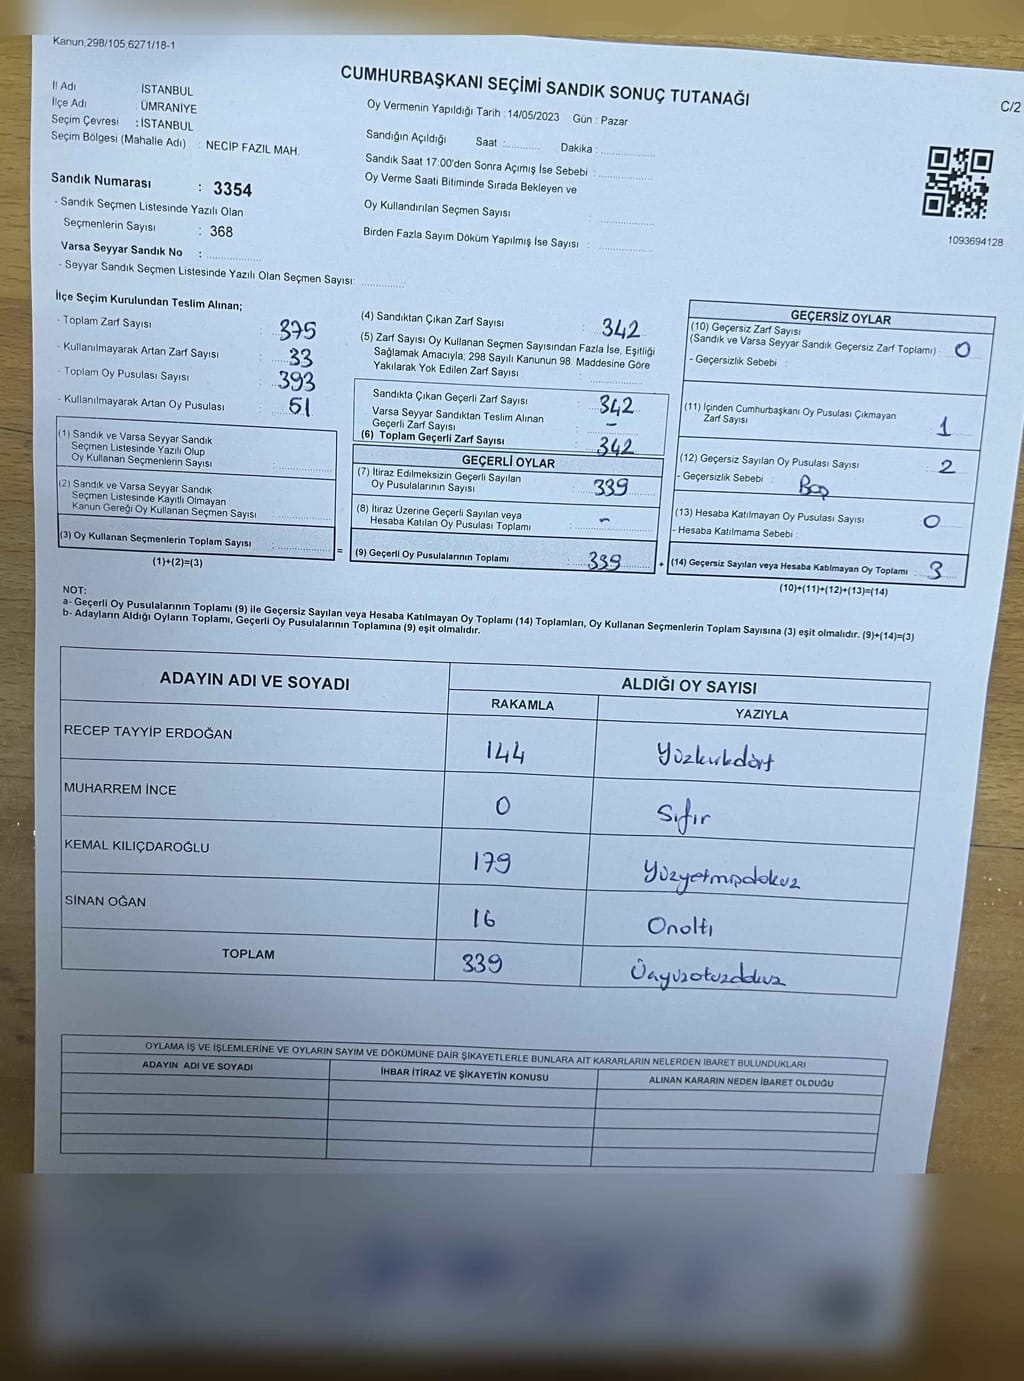 Kanun,298/105,6271/18-1
CUMHURBAŞKANI SEÇİMİ SANDIK SONUÇ TUTANAĞI
C/2
İl Adı : İSTANBUL
İlçe Adı : ÜMRANİYE
Seçim Çevresi : İSTANBUL
Seçim Bölgesi (Mahalle Adı) : NECİP FAZIL MAH.
Sandık Numarası : 3354
- Sandık Seçmen Listesinde Yazılı Olan
Seçmenlerin Sayısı : 368
Varsa Seyyar Sandık No :
- Seyyar Sandık Seçmen Listesinde Yazılı Olan Seçmen Sayısı:
Oy Vermenin Yapıldığı Tarih : 14/05/2023 Gün : Pazar
Sandığın Açıldığı Saat : Dakika :
Sandık Saat 17:00'den Sonra Açımış İse Sebebi :
Oy Verme Saati Bitiminde Sırada Bekleyen ve
Oy Kullandırılan Seçmen Sayısı :
Birden Fazla Sayım Döküm Yapılmış İse Sayısı :
1093694128
İlçe Seçim Kurulundan Teslim Alınan;
- Toplam Zarf Sayısı : 375
- Kullanılmayarak Artan Zarf Sayısı : 33
- Toplam Oy Pusulası Sayısı : 393
- Kullanılmayarak Artan Oy Pusulası : 51
(1) Sandık ve Varsa Seyyar Sandık
Seçmen Listesinde Yazılı Olup
Oy Kullanan Seçmenlerin Sayısı :
(2) Sandık ve Varsa Seyyar Sandık
Seçmen Listesinde Kayıtlı Olmayan
Kanun Gereği Oy Kullanan Seçmen Sayısı :
(3) Oy Kullanan Seçmenlerin Toplam Sayısı :
(1)+(2)=(3)
=
(4) Sandıktan Çıkan Zarf Sayısı : 342
(5) Zarf Sayısı Oy Kullanan Seçmen Sayısından Fazla İse, Eşitliği
Sağlamak Amacıyla; 298 Sayılı Kanunun 98. Maddesine Göre
Yakılarak Yok Edilen Zarf Sayısı :
Sandıkta Çıkan Geçerli Zarf Sayısı : 342
Varsa Seyyar Sandıktan Teslim Alınan
Geçerli Zarf Sayısı : -
(6) Toplam Geçerli Zarf Sayısı : 342
GEÇERLİ OYLAR
(7) İtiraz Edilmeksizin Geçerli Sayılan
Oy Pusulalarının Sayısı : 339
(8) İtiraz Üzerine Geçerli Sayılan veya
Hesaba Katılan Oy Pusulası Toplamı : -
(9) Geçerli Oy Pusulalarının Toplamı : 339
+
GEÇERSİZ OYLAR
(10) Geçersiz Zarf Sayısı
(Sandık ve Varsa Seyyar Sandık Geçersiz Zarf Toplamı) : 0
- Geçersizlik Sebebi :
(11) İçinden Cumhurbaşkanı Oy Pusulası Çıkmayan
Zarf Sayısı : 1
(12) Geçersiz Sayılan Oy Pusulası Sayısı : 2
- Geçersizlik Sebebi : Boş
(13) Hesaba Katılmayan Oy Pusulası Sayısı : 0
- Hesaba Katılmama Sebebi :
(14) Geçersiz Sayılan veya Hesaba Katılmayan Oy Toplamı : 3
(10)+(11)+(12)+(13)=(14)
NOT:
a- Geçerli Oy Pusulalarının Toplamı (9) ile Geçersiz Sayılan veya Hesaba Katılmayan Oy Toplamı (14) Toplamları, Oy Kullanan Seçmenlerin Toplam Sayısına (3) eşit olmalıdır. (9)+(14)=(3)
b- Adayların Aldığı Oyların Toplamı, Geçerli Oy Pusulalarının Toplamına (9) eşit olmalıdır.
ADAYIN ADI VE SOYADI ALDIĞI OY SAYISI
RAKAMLA YAZIYLA
RECEP TAYYİP ERDOĞAN 144 Yüzkırkdört
MUHARREM İNCE 0 Sıfır
KEMAL KILIÇDAROĞLU 179 Yüzyetmişdokuz
SİNAN OĞAN 16 Onaltı
TOPLAM 339
OYLAMA İŞ VE İŞLEMLERİNE VE OYLARIN SAYIM VE DÖKÜMÜNE DAİR ŞİKAYETLERLE BUNLARA AİT KARARLARIN NELERDEN İBARET BULUNDUKLARI
ADAYIN ADI VE SOYADI İHBAR İTİRAZ VE ŞİKAYETİN KONUSU ALINAN KARARIN NEDEN İBARET OLDUĞU